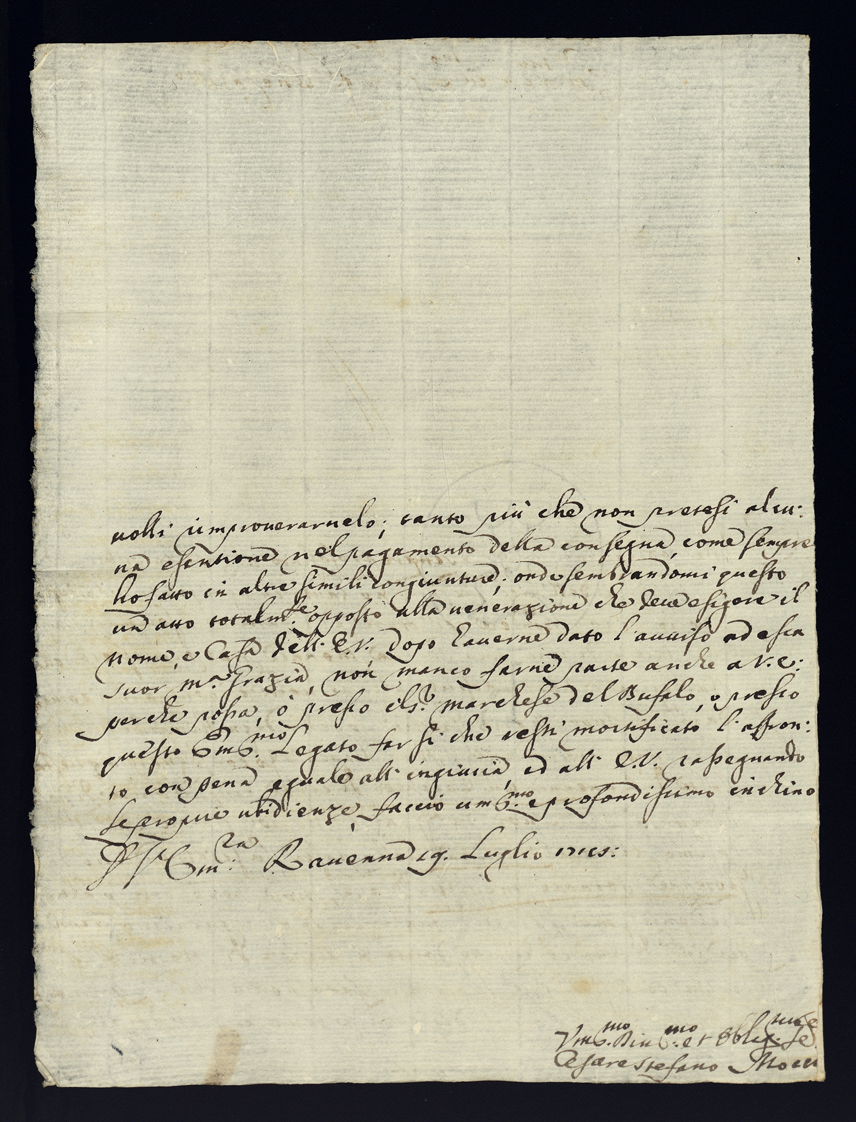 uolli improuerarnelo; tanto più che non pretesi alcu:
na esentione nel pagamento della consegna, come sempre
ho fatto in altre simili congiunture; onde sembrandomi questo
un atto totalm.te opposto alla uenerazione che deue esigere il
nome, e Casa dell' E.V. dopo hauerne dato l'auuiso ad essa
Suor M.a Grazia, non manco farne parte anche a V.E:
perche possa, ò presso il S.r Marchese del Bufalo, o presso
questo Em.mo Legato far sì che resti mortificato l'affron:
to con pena eguale all' ingiuria, ed all' E.V. rassegnando
le proprie ubidienze, faccio um.mo e profondissimo inchino
Ravenna 19. Luglio
Vm.mo Diu.mo et Oblig.
Cesare Stefano